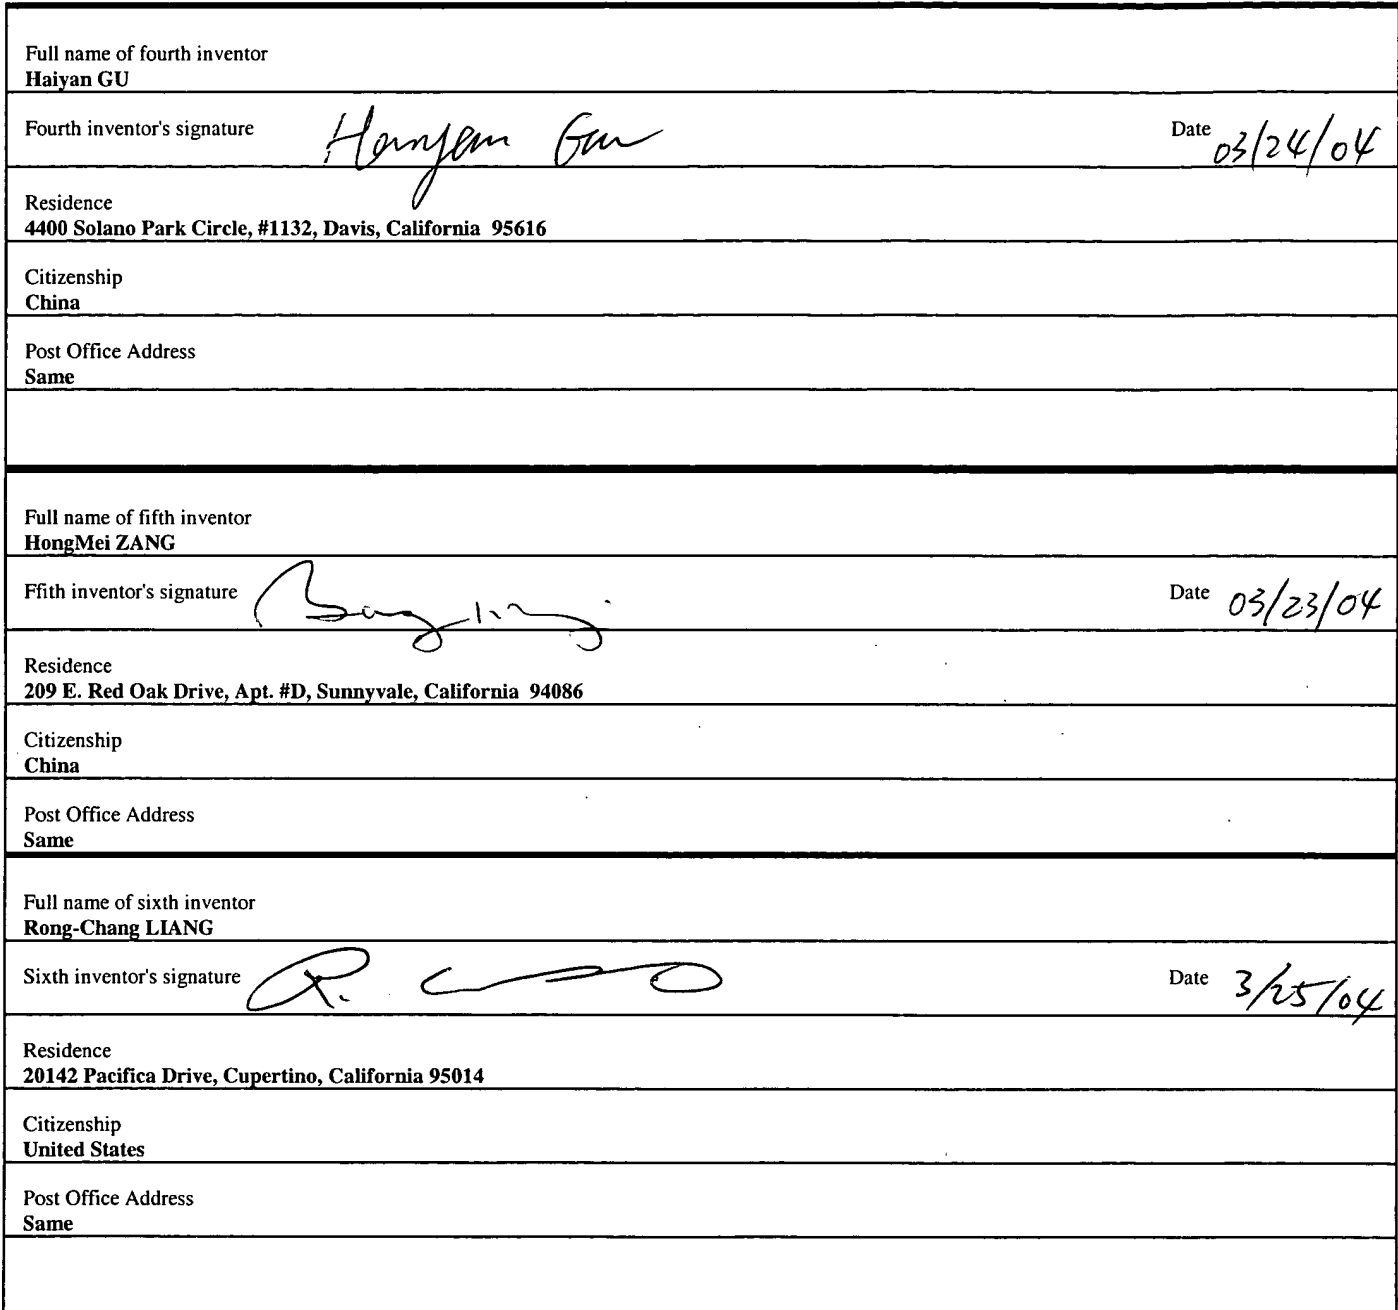 Full name of fourth inventor
Haiyan GU
Fourth inventor's signature Haiyan Gu Date 03/24/04
Residence
4400 Solano Park Circle, #1132, Davis, California 95616
Citizenship
China
Post Office Address
Same
Full name of fifth inventor
HongMei ZANG
Ffith inventor's signature Date 03/23/04
Residence
209 E. Red Oak Drive, Apt. #D, Sunnyvale, California 94086
Citizenship
China
Post Office Address
Same
Full name of sixth inventor
Rong-Chang LIANG
Sixth inventor's signature R. Date 3/25/04
Residence
20142 Pacifica Drive, Cupertino, California 95014
Citizenship
United States
Post Office Address
Same